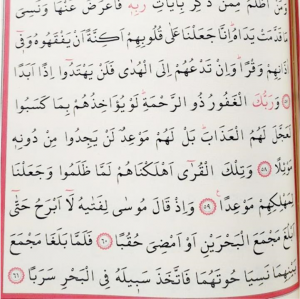 مَنْ اَظْلَمُ مِمَّنْ ذُكِّرَ بِاٰيَاتِ رَبِّه۪ فَاَعْرَضَ عَنْهَا وَنَسِيَ
مَا قَدَّمَتْ يَدَاهُ اِنَّا جَعَلْنَا عَلٰى قُلُوبِهِمْ اَكِنَّةً اَنْ يَفْقَهُوهُ وَف۪ٓي
اٰذَانِهِمْ وَقْرًا وَاِنْ تَدْعُهُمْ اِلَى الْهُدٰى فَلَنْ يَهْتَدُٓوا اِذًا اَبَدًا
﴿٥٧﴾ وَرَبُّكَ الْغَفُورُ ذُو الرَّحْمَةِ لَوْ يُؤَاخِذُهُمْ بِمَا كَسَبُوا
لَعَجَّلَ لَهُمُ الْعَذَابَ بَلْ لَهُمْ مَوْعِدٌ لَنْ يَجِدُوا مِنْ دُونِه۪
مَوْئِلًا ﴿٥٨﴾ وَتِلْكَ الْقُرٰٓى اَهْلَكْنَاهُمْ لَمَّا ظَلَمُوا وَجَعَلْنَا
لِمَهْلِكِهِمْ مَوْعِدًا ﴿٥٩﴾ وَاِذْ قَالَ مُوسٰى لِفَتٰيهُ لَٓا اَبْرَحُ حَتّٰٓى
اَبْلُغَ مَجْمَعَ الْبَحْرَيْنِ اَوْ اَمْضِيَ حُقُبًا ﴿٦٠﴾ فَلَمَّا بَلَغَا مَجْمَعَ
بَيْنِهِمَا نَسِيَا حُوتَهُمَا فَاتَّخَذَ سَب۪يلَهُ فِي الْبَحْرِ سَرَبًا ﴿٦١﴾